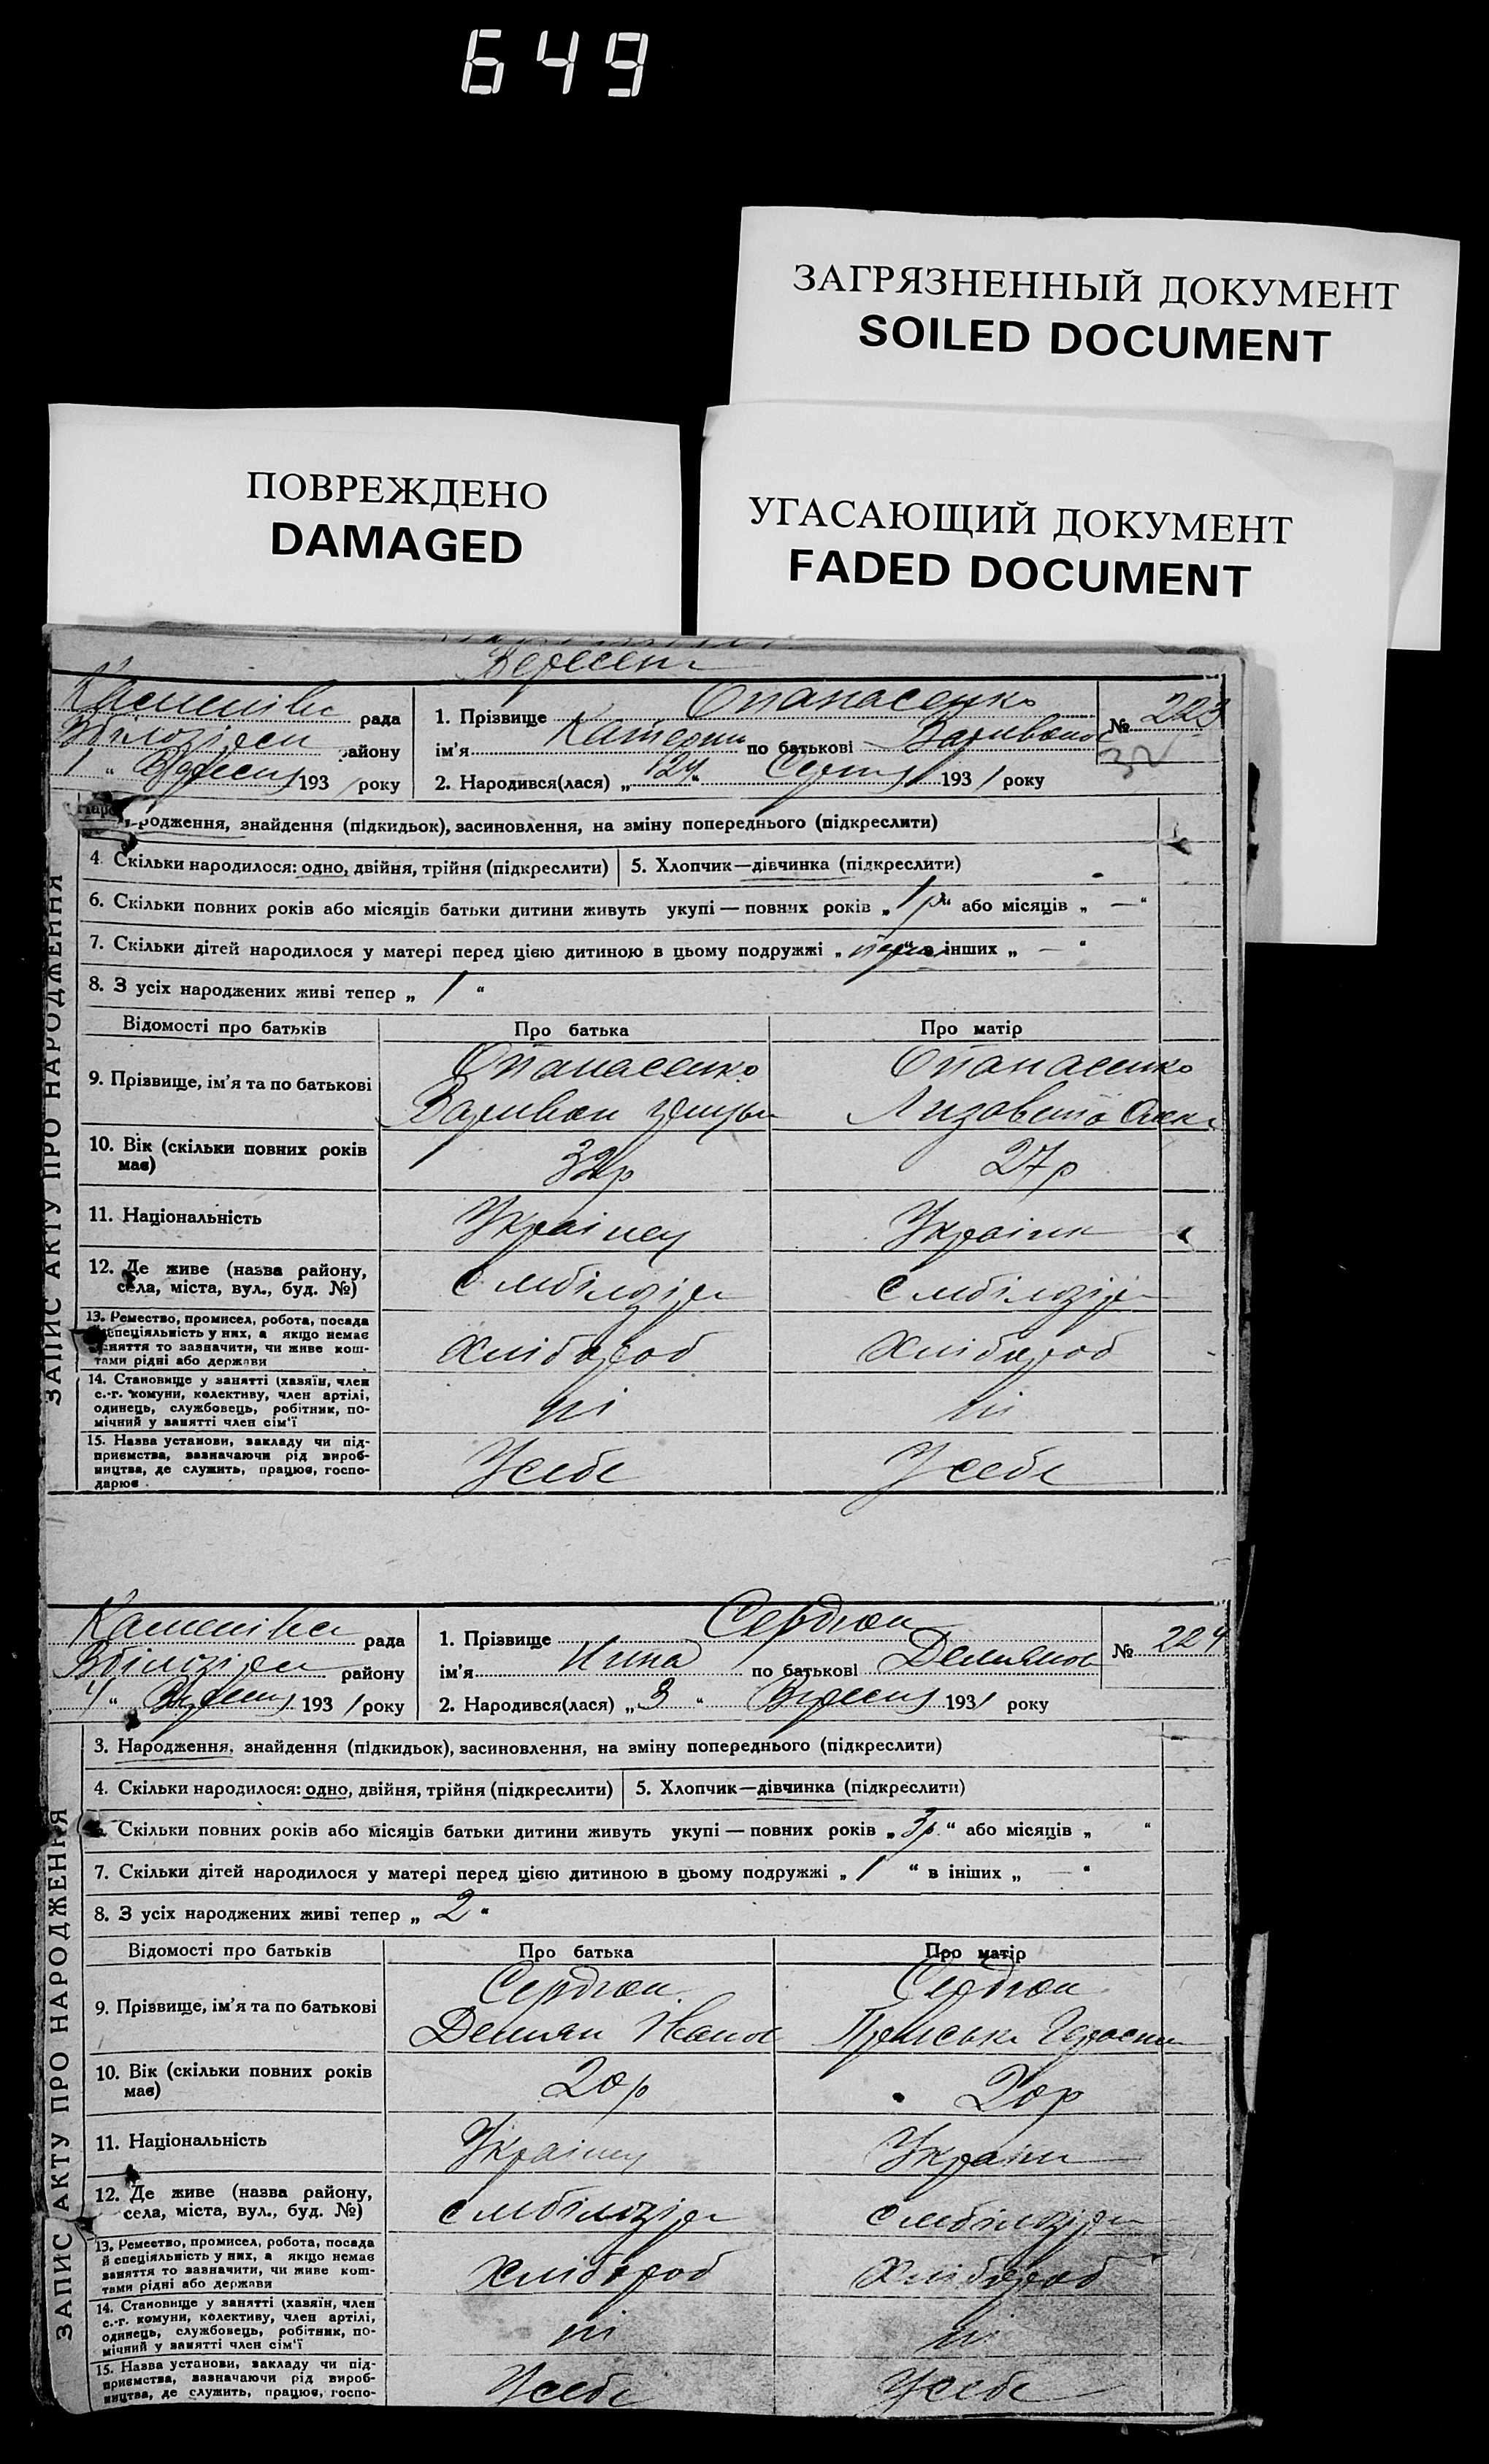 649
ЗАГРЯЗНЕННЫЙ ДОКУМЕНТ
SOILED DOCUMENT
ПОВРЕЖДЕНО
DAMAGED
УГАСАЮЩИЙ ДОКУМЕНТ
FADED DOCUMENT
ЗАПИС АКТУ ПРО НАРОДЖЕННЯ
рада 1. Прізвище Опанасенко № 223
району ім'я Катерин по батькові 32
1 " 193 1 року 2. Народився(лася) „ 24 " Серпня 193 1 року
родження, знайдення (підкидьок), засиновлення, на зміну попереднього (підкреслити)
4. Скільки народилося: одно, двійня, трійня (підкреслити) 5. Хлопчик—дівчинка (підкреслити)
6. Скільки повних років або місяців батьки дитини живуть укупі — повних років „ 1 р " або місяців „ — "
7. Скільки дітей народилося у матері перед цією дитиною в цьому подружжі „ " в інших „ — "
8. З усіх народжених живі тепер „ 1 "
Відомості про батьків Про батька Про матір
9. Прізвище, ім'я та по батькові Опанасенко Опанасенко
Лизовета
10. Вік (скільки повних років має) 32р 27р
11. Національність Українец Українк
12. Де живе (назва району, села, міста, вул., буд. №)
13. Ремество, промисел, робота, посада
й спеціяльність у них, а якщо немає
заняття то зазначити, чи живе кош-
тами рідні або держави Хлібороб Хлібороб
14. Становище у занятті (хазяїн, член
с.-г. комуни, колективу, член артілі,
одинець, службовець, робітник, по-
мічний у занятті член сім'ї ні ні
15. Назва установи, закладу чи під-
приємства, зазначаючи рід вироб-
ництва, де служить, працює, госпо-
дарює У себе У себе
ЗАПИС АКТУ ПРО НАРОДЖЕННЯ
рада 1. Прізвище Сердюк № 224
району ім'я Нина по батькові Демянов
4 " 193 1 року 2. Народився(лася) „ 3 " Вересня 193 1 року
3. Народження, знайдення (підкидьок), засиновлення, на зміну попереднього (підкреслити)
4. Скільки народилося: одно, двійня, трійня (підкреслити) 5. Хлопчик—дівчинка (підкреслити)
Скільки повних років або місяців батьки дитини живуть укупі — повних років „ 3р. " або місяців „ "
7. Скільки дітей народилося у матері перед цією дитиною в цьому подружжі „ 1 " в інших „ — "
8. З усіх народжених живі тепер „ 2 "
Відомості про батьків Про батька Про матір
9. Прізвище, ім'я та по батькові Сердюк Сердюк
Демян Іванов
10. Вік (скільки повних років має) 20р 20р
11. Національність Українец Україн
12. Де живе (назва району, села, міста, вул., буд. №)
13. Ремество, промисел, робота, посада
й спеціяльність у них, а якщо немає
заняття то зазначити, чи живе кош-
тами рідні або держави Хлібороб Хлібороб
14. Становище у занятті (хазяїн, член
с.-г. комуни, колективу, член артілі,
одинець, службовець, робітник, по-
мічний у занятті член сім'ї ні ні
15. Назва установи, закладу чи під-
приємства, зазначаючи рід вироб-
ництва, де служить, працює, госпо- У себе У себе